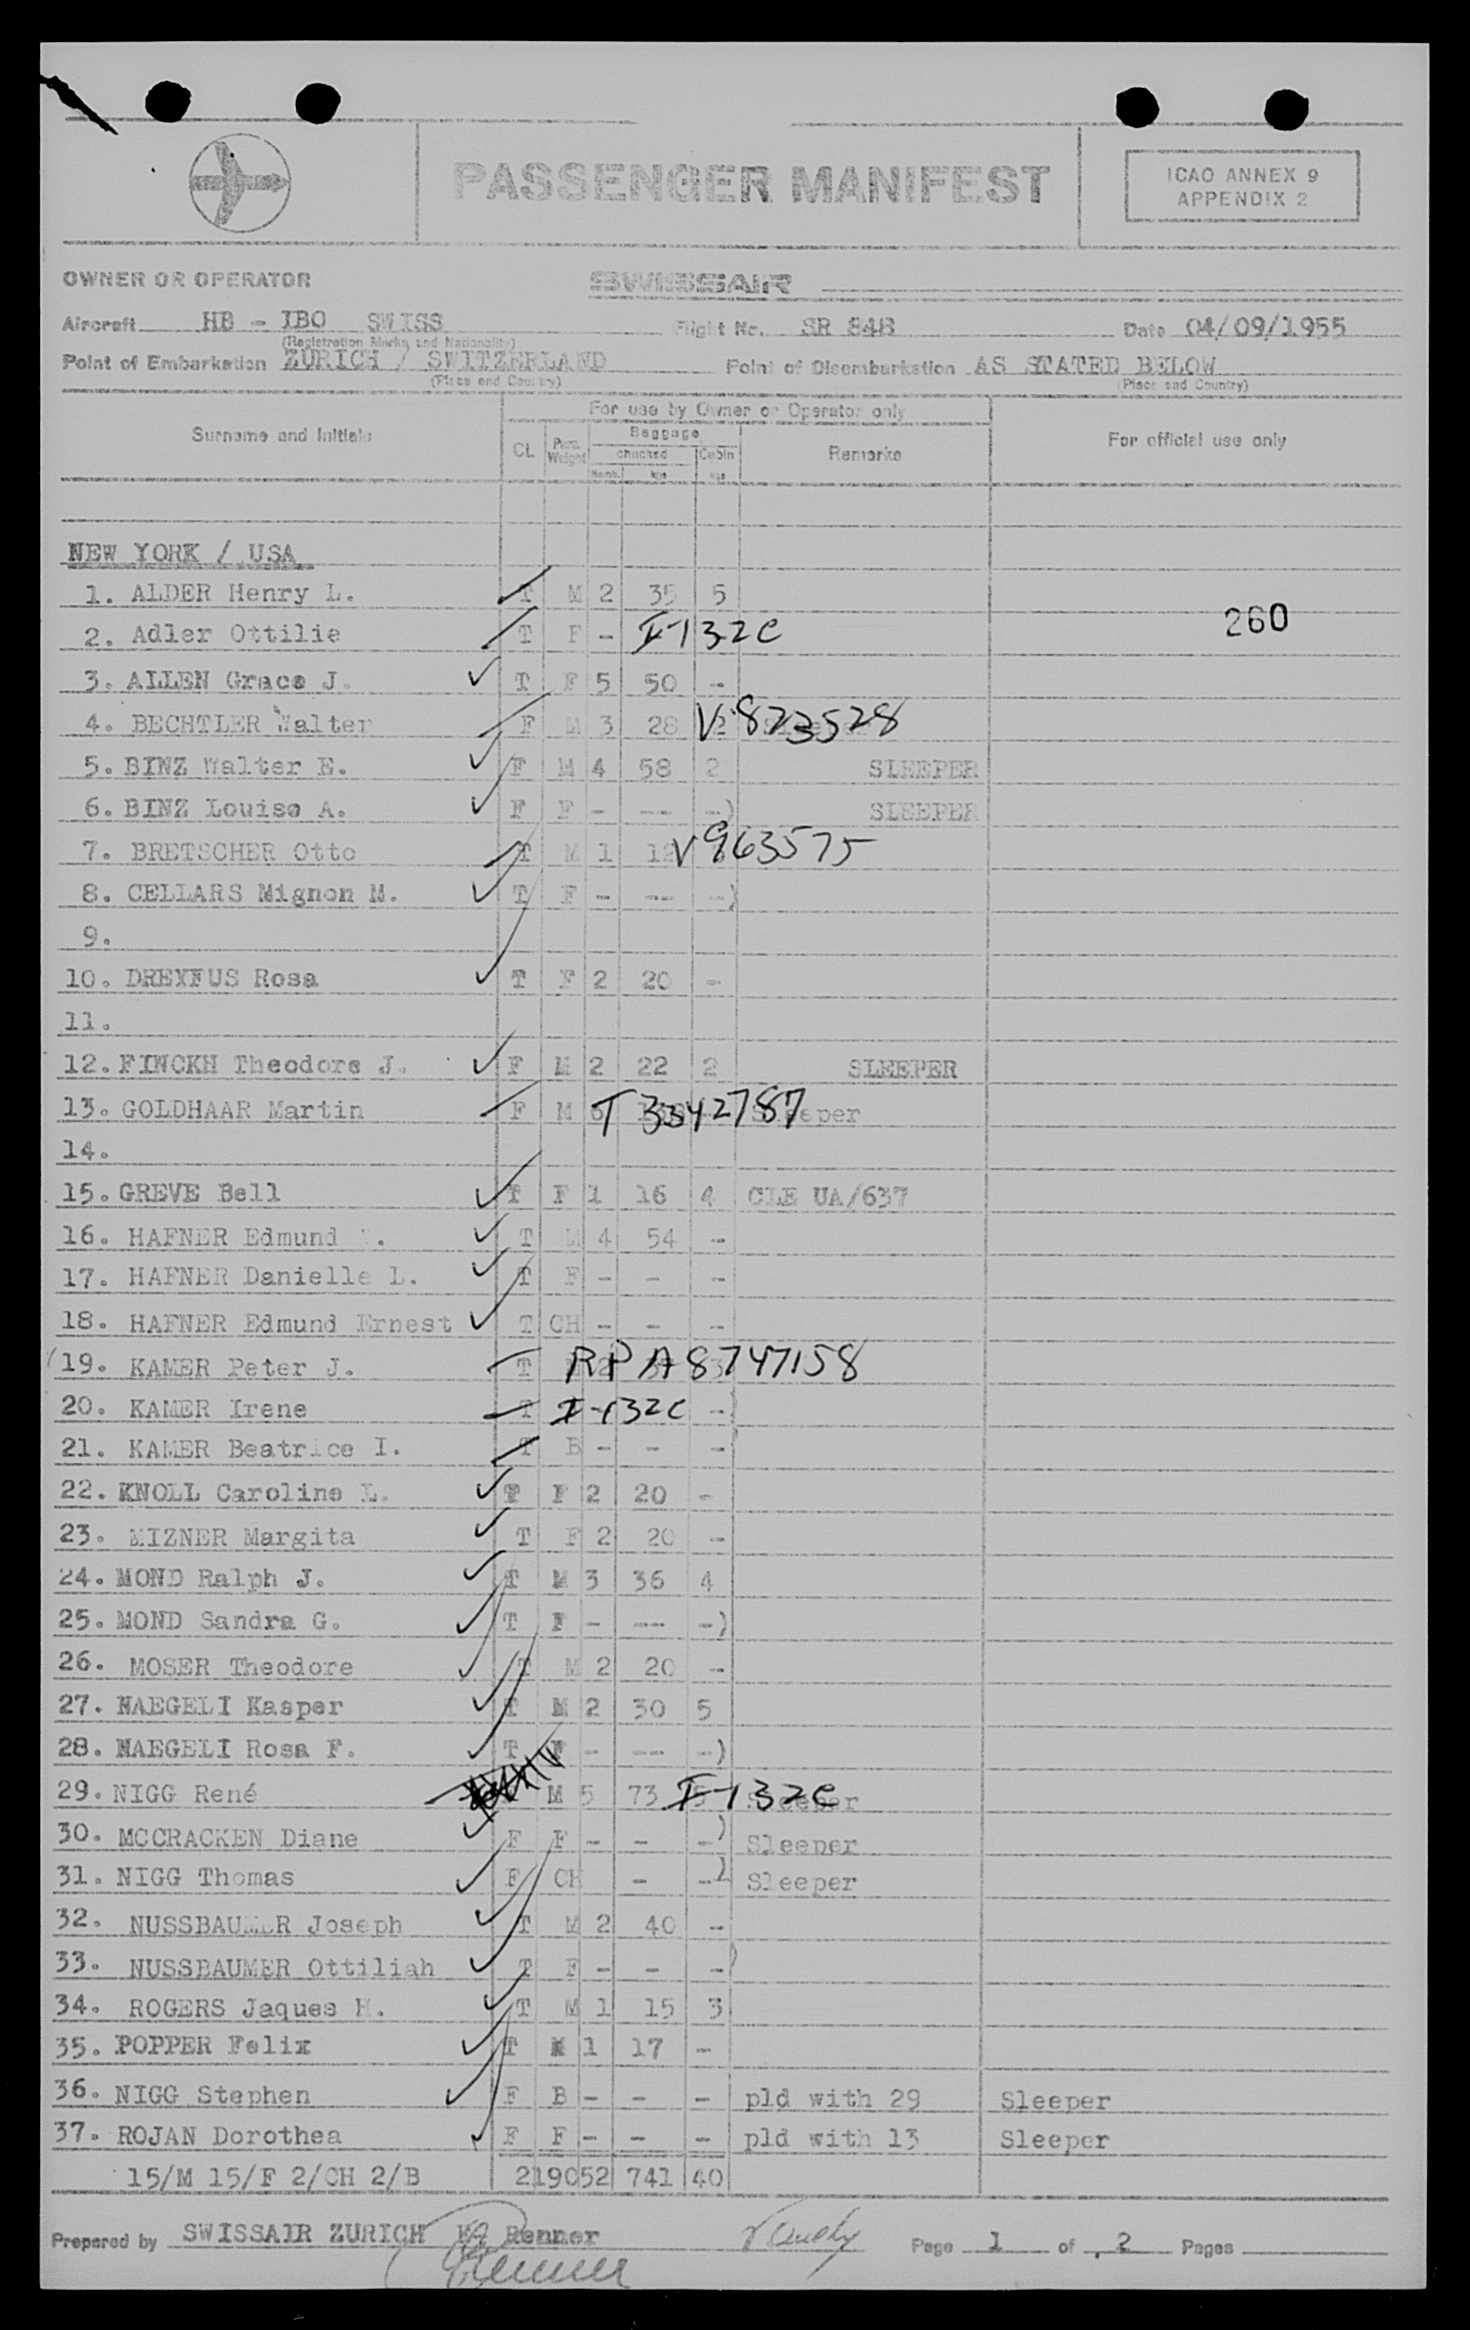 PASSENGER MANIFEST
ICAO ANNEX 9
APPENDIX 2
OWNER OR OPERATOR SWISSAIR
Aircraft HB - IBO SWISS Flight No. SR 848 Date 04/09/1955
(Registration Marks and Nationality)
Point of Embarkation ZURICH / SWITZERLAND Point of Disembarkation AS STATED BELOW
(Place and Country) (Place and Country)
For use by Owner or Operator only
Surname and Initials CL. Pass. Weight Baggage Remarks For official use only
checked Cabin
Numb. kgs kgs
NEW YORK / USA
1. ALDER Henry L. T M 2 35 5
260
2. Adler Ottilie T F - I-132C
3. ALLEN Grace J. T F 5 50 -
4. BECHTLER Walter F M 3 28 2 V-823528
5. BINZ Walter E. F M 4 58 2 SLEEPER
6. BINZ Louise A. F F - --- -) SLEEPER
7. BRETSCHER Otto T M 1 12 V963575
8. CELLARS Mignon M. T F - --- -)
9.
10. DREYFUS Rosa T F 2 20 -
11.
12. FINCKH Theodore J. F M 2 22 2 SLEEPER
13. GOLDHAAR Martin F M 6 T3342787 Sleeper
14.
15. GREVE Bell T F 1 16 4 CLE UA/637
16. HAFNER Edmund . T M 4 54 -
17. HAFNER Danielle L. T F - - -
18. HAFNER Edmund Ernest T CH - - -
19. KAMER Peter J. T 2 3 RPA8747158
20. KAMER Irene T I-132C -)
21. KAMER Beatrice I. T B - - -
22. KNOLL Caroline L. T F 2 20 -
23. MIZNER Margita T F 2 20 -
24. MOND Ralph J. T M 3 36 4
25. MOND Sandra G. T F - --- -)
26. MOSER Theodore T M 2 20 -
27. NAEGELI Kasper T M 2 30 5
28. NAEGELI Rosa F. T F - --- -)
29. NIGG René M 5 73 5 I-132C Sleeper
30. MCCRACKEN Diane F F - - -) Sleeper
31. NIGG Thomas F CH - -) Sleeper
32. NUSSBAUMER Joseph T M 2 40 -
33. NUSSBAUMER Ottiliah T F - - -)
34. ROGERS Jaques H. T M 1 15 3
35. POPPER Felix T M 1 17 -
36. NIGG Stephen F B - - - pld with 29 Sleeper
37. ROJAN Dorothea F F - - - pld with 13 Sleeper
15/M 15/F 2/CH 2/B 2190 52 741 40
Prepared by SWISSAIR ZURICH Renner Page 1 of 2 Pages
Renner